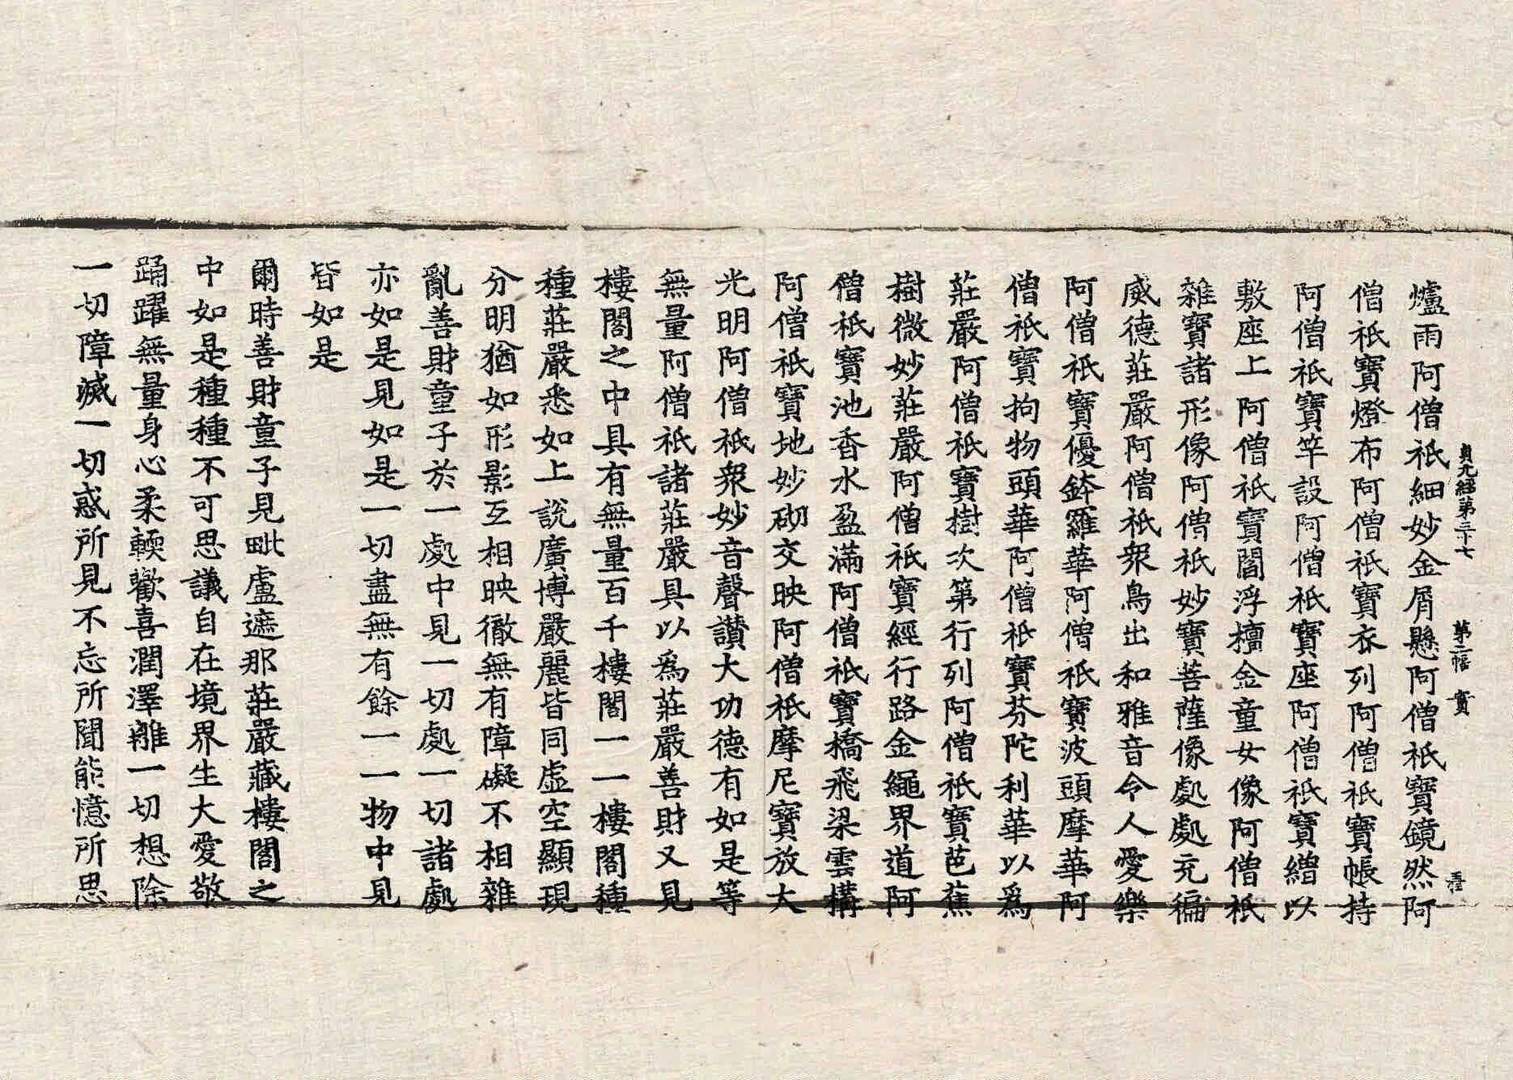 貞元經第三十七 第二幅 實
爐雨阿僧祇細妙金屑懸阿僧祇寶鏡然阿
僧祇寶燈布阿僧祇寶衣列阿僧祇寶帳持
阿僧祇寶竿設阿僧祇寶座阿僧祇寶繒以
敷座上阿僧祇寶閻浮檀金童女像阿僧祇
雜寶諸形像阿僧祇妙寶菩薩像處處充徧
威德莊嚴阿僧祇衆鳥出和雅音令人愛樂
阿僧祇寶優鉢羅華阿僧祇寶波頭摩華阿
僧祇寶拘物頭華阿僧祇寶芬陀利華以為
莊嚴阿僧祇寶樹次第行列阿僧祇寶芭蕉
樹微妙莊嚴阿僧祇寶經行路金繩界道阿
僧祇寶池香水盈滿阿僧祇寶橋飛梁雲構
阿僧祇寶地妙砌交映阿僧祇摩尼寶放大
光明阿僧祇衆妙音聲讚大功德有如是等
無量阿僧祇諸莊嚴具以為莊嚴善財又見
樓閣之中具有無量百千樓閣一一樓閣種
種莊嚴悉如上說廣博嚴麗皆同虛空顯現
分明猶如形影互相映徹無有障礙不相雜
亂善財童子於一處中見一切處一切諸處
亦如是見如是一切盡無有餘一一物中見
皆如是
爾時善財童子見毗盧遮那莊嚴藏樓閣之
中如是種種不可思議自在境界生大愛敬
踊躍無量身心柔輭歡喜潤澤離一切想除
一切障滅一切惑所見不忘所聞能憶所思